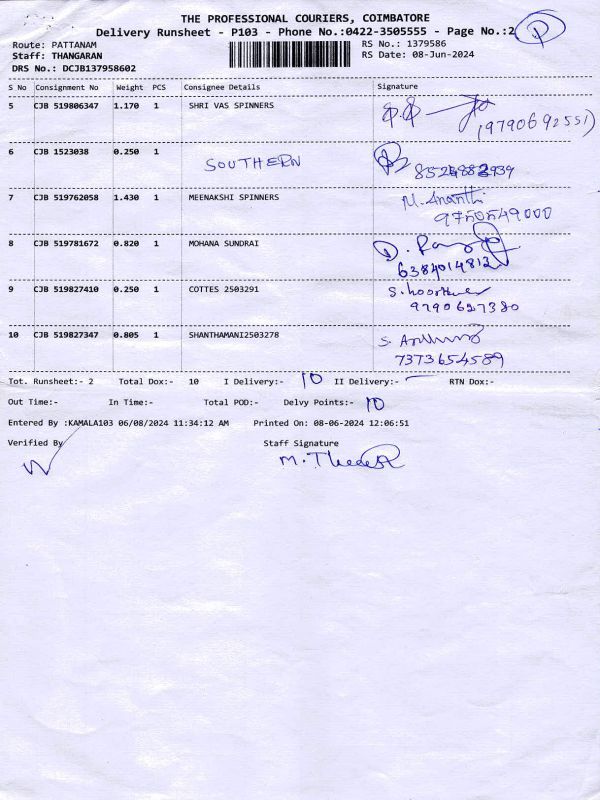 THE PROFESSIONAL COURIERS, COIMBATORE
Delivery Runsheet - P103 - Phone No.:0422-3505555 - Page No.:2 P
Route: PATTANAM RS No.: 1379586
Staff: THANGARAN RS Date: 08-Jun-2024
DRS No.: DCJB137958602
S No Consignment No Weight PCS Consignee Details Signature
5 CJB 519806347 1.170 1 SHRI VAS SPINNERS
(9790692551)
6 CJB 1523038 0.250 1 SOUTHERN
7 CJB 519762058 1.430 1 MEENAKSHI SPINNERS M. Ananthi
9750549000
8 CJB 519781672 0.820 1 MOHANA SUNDRAI
6384014812
9 CJB 519827410 0.250 1 COTTES 2503291
9790627380
10 CJB 519827347 0.805 1 SHANTHAMANI2503278
7373654589
Tot. Runsheet:- 2 Total Dox:- 10 I Delivery:- 10 II Delivery:- — RTN Dox:-
Out Time:- In Time:- Total POD:- Delvy Points:- 10
Entered By :KAMALA103 06/08/2024 11:34:12 AM Printed On: 08-06-2024 12:06:51
Verified By Staff Signature